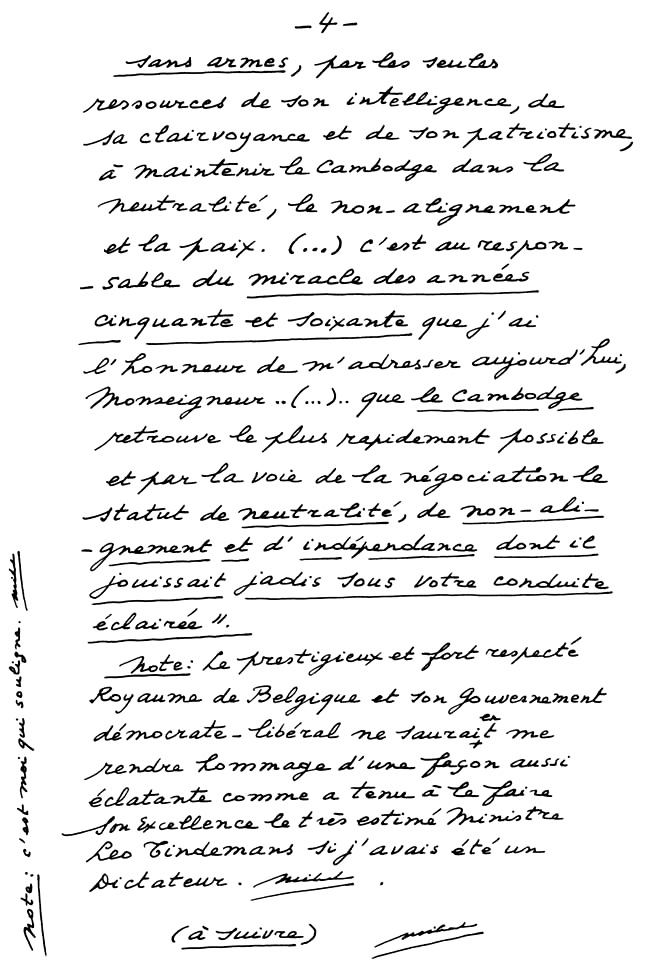 - 4 -
sans armes, par les seules
ressources de son intelligence, de
sa clairvoyance et de son patriotisme,
à maintenir le Cambodge dans la
neutralité, le non-alignement
et la paix. (...) c'est au respon-
- sable du miracle des années
cinquante et soixante que j'ai
l'honneur de m'adresser aujourd'hui,
Monseigneur ..(...).. que le Cambodge
retrouve le plus rapidement possible
et par la voie de la négociation le
statut de neutralité, de non-ali-
- gnement et d'indépendance dont il
jouissait jadis sous votre conduite
éclairée".
Note: Le prestigieux et fort respecté
Royaume de Belgique et son Gouvernement
démocrate-libéral ne sauraient me
rendre hommage d'une façon aussi
éclatante comme a tenu à le faire
Son Excellence le très estimé Ministre
Leo Tindemans si j'avais été un
Dictateur.
(à suivre)
Note: c'est moi qui souligne.